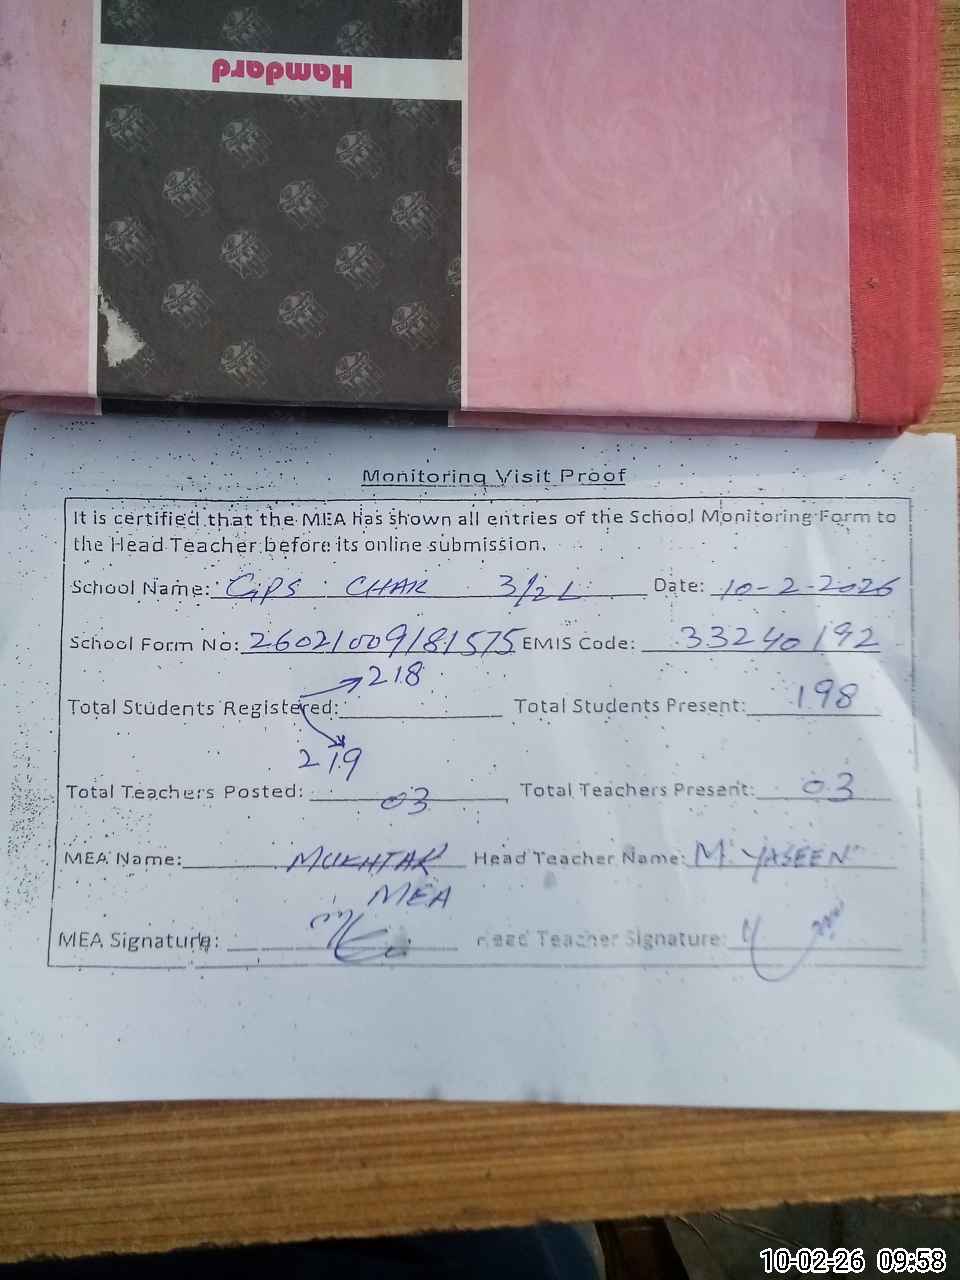 Hamdard
Monitoring Visit Proof
It is certified that the MEA has shown all entries of the School Monitoring Form to
the Head Teacher before its online submission.
School Name: GPS CHAK 3/2L Date: 10-2-2026
School Form No: 26021009181575 EMIS Code: 33240192
218
Total Students Registered: Total Students Present: 198
219
Total Teachers Posted: 03 Total Teachers Present: 03
MEA Name: MUKHTAR Head Teacher Name: M. YASEEN
MEA
MEA Signature: Head Teacher Signature:
10-02-26 09:58